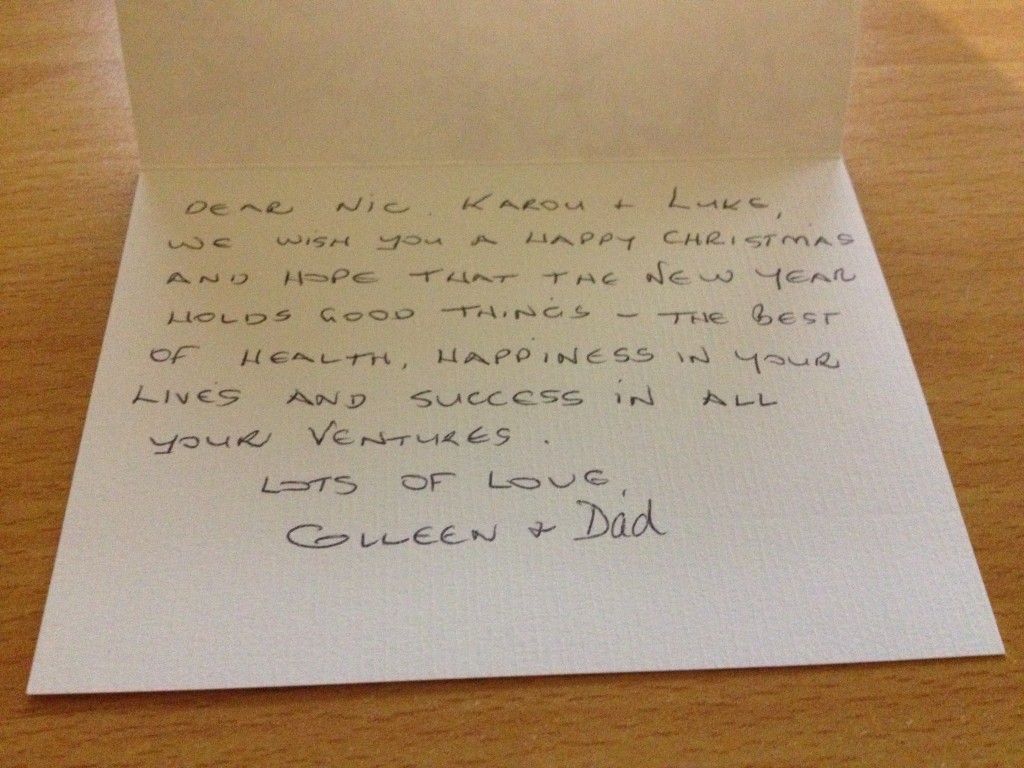 DEAR NIC. KAROU + LUKE,
WE WISH YOU A HAPPY CHRISTMAS
AND HOPE THAT THE NEW YEAR
HOLDS GOOD THINGS - THE BEST
OF HEALTH, HAPPINESS IN YOUR
LIVES AND SUCCESS IN ALL
YOUR VENTURES.
LOTS OF LOVE,
COLLEEN + Dad